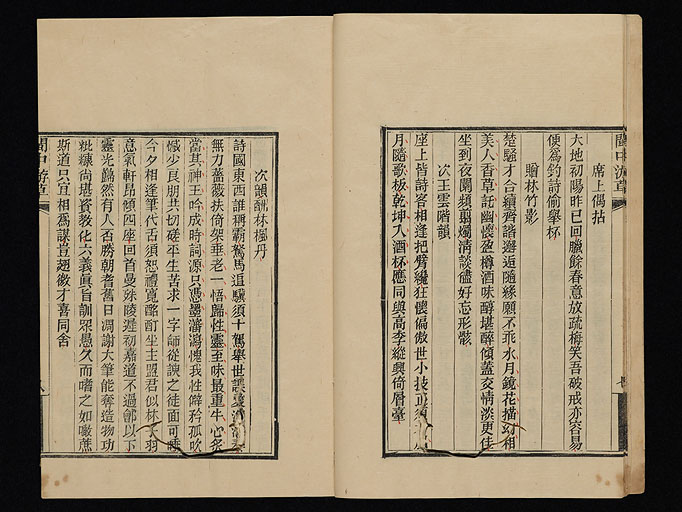 席上偶拈
大地初陽昨已回臘餘春意放疏梅笑吾破戒亦容易
便爲釣詩偷舉杯
贈林竹影
楚騷才合續齊諧邂逅隨緣願不乖水月鏡花描幻相
美人香草託幽懷盈樽酒味醇堪醉傾蓋交情淡更佳
坐到夜闌頻剪燭清談儘好忘形骸
次王雲階韻
座上皆詩客相逢把臂纔狂懷偏傲世小技
月隨歌板乾坤入酒杯應同與高李縱興倚層臺
次韻酬林楓丹
詩國東西誰稱霸駑馬追驥須十駕舉世
無力薔薇扶倚架垂老一悟歸性靈至味最重牛心炙
當其神王吟成時詞源只憑墨瀋瀉愧我性僻矜孤吹
慨少良朋共切磋平生苦求一字師從諛之徒面可唾
今夕相逢筆代舌須恕禮寬酩酊坐主盟君似林羽
意氣軒昂傾四座回首曼殊陵遲初嘉道不過鄶以下
靈光巋然有人否勝朝耆舊日凋謝大筆能奪造物功
粃糠尚堪資教化六義眞旨訓罙愚久而嗜之如噉蔗
斯道只宜相爲謀豈趨微才喜同舍